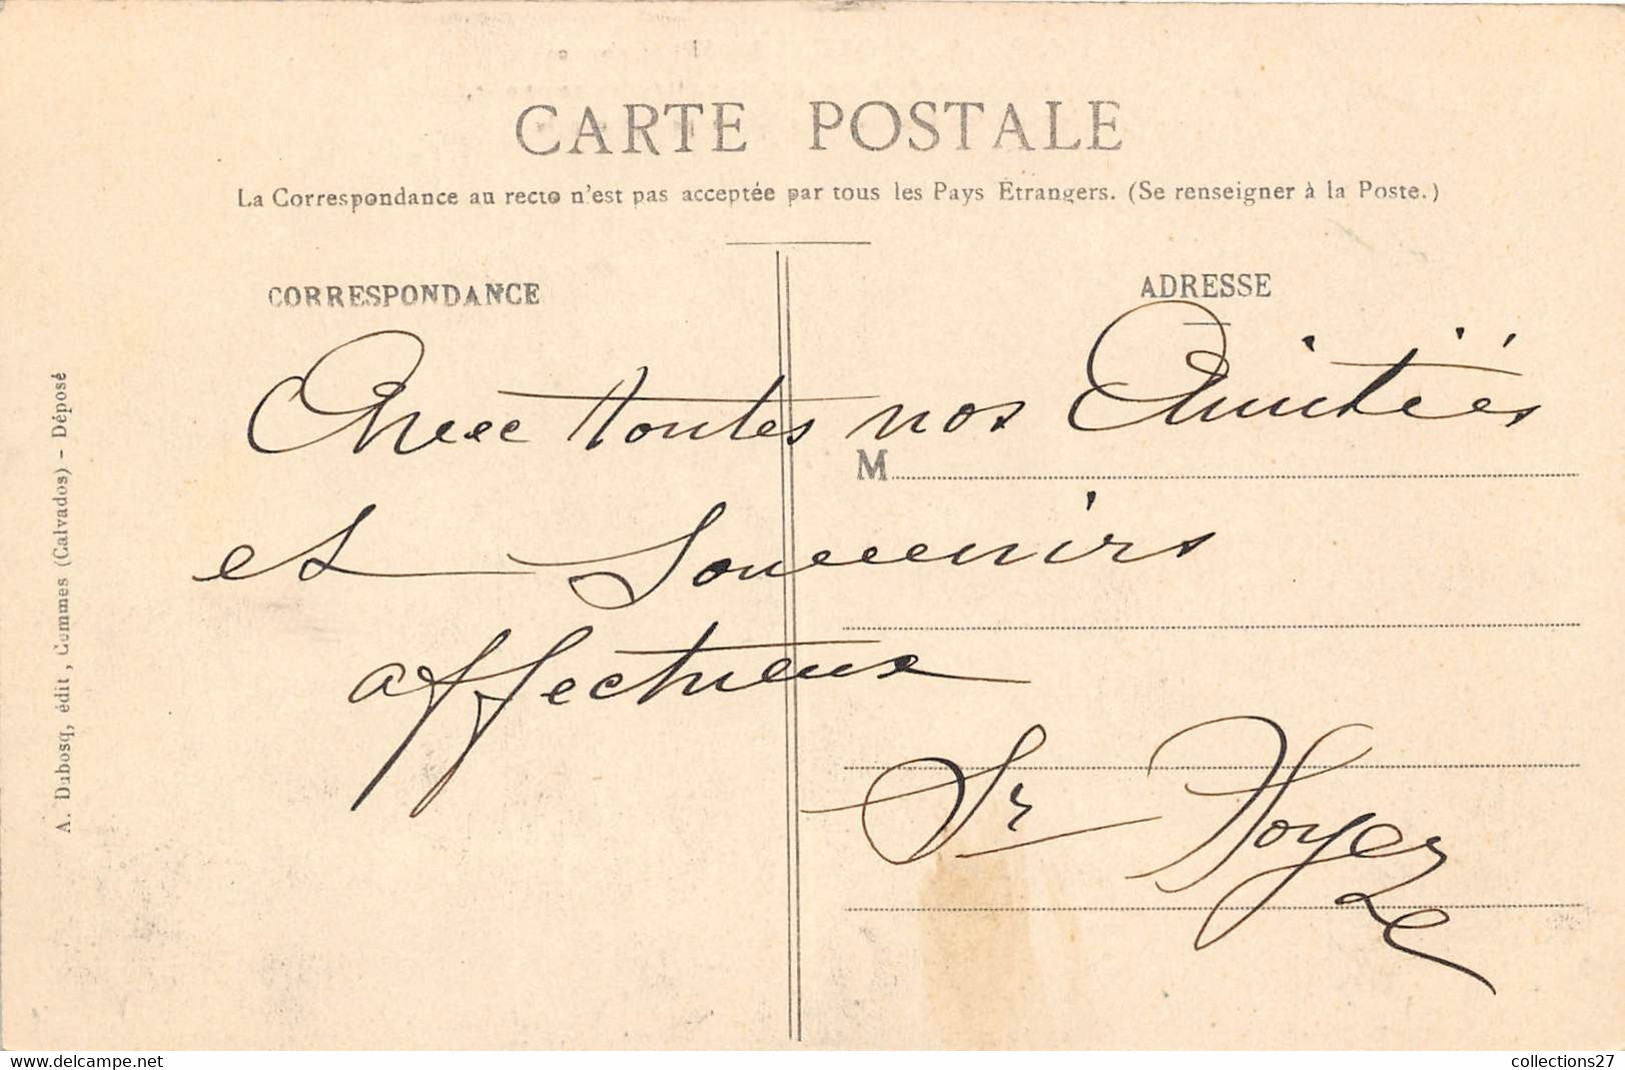 CARTE POSTALE
La Correspondance au recto n'est pas acceptée par tous les Pays Etrangers. (Se renseigner à la Poste.)
CORRESPONDANCE
ADRESSE
Avec toutes nos Amitiés
M
et Souvenirs
affectueux
A. Dubosq, édit, Commes (Calvados) - Déposé
collections27